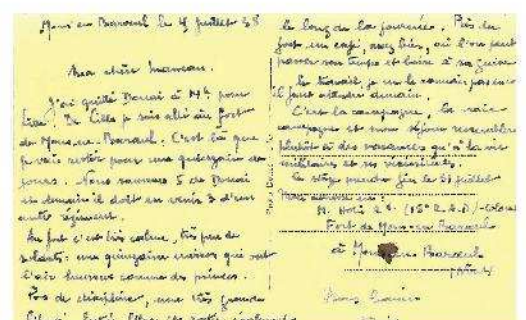 Mons en Baroeul le 4 juillet 38
Ma chère maman.
J'ai quitté Douai à 14h pour
Lille. De Lille je suis allé au fort
de Mons-en-Baroeul. C'est là que
je vais rester pour une quinzaine de
jours. Nous sommes 5 de Douai
et demain il doit en venir 3 d'un
autre régiment.
Au fort c'est très calme, très peu de
soldats: une quinzaine qui ont
l'air heureux comme des princes.
Pas de discipline, une très grande
le long de la journée. Près du
fort un café, où l'on peut
passer son temps et boire à sa guise
le travail je ne le connais pas encore
il faut attendre demain.
C'est la campagne, la vraie
campagne et mon séjour ressemblera
plutôt à des vacances qu'à la vie
militaire et ses vicissitudes.
Le stage prendra fin le 21 juillet
Mon adresse est:
M. (15e R.A.D)
Fort de Mons-en-Baroeul
à Mons en Baroeul
(Nord)